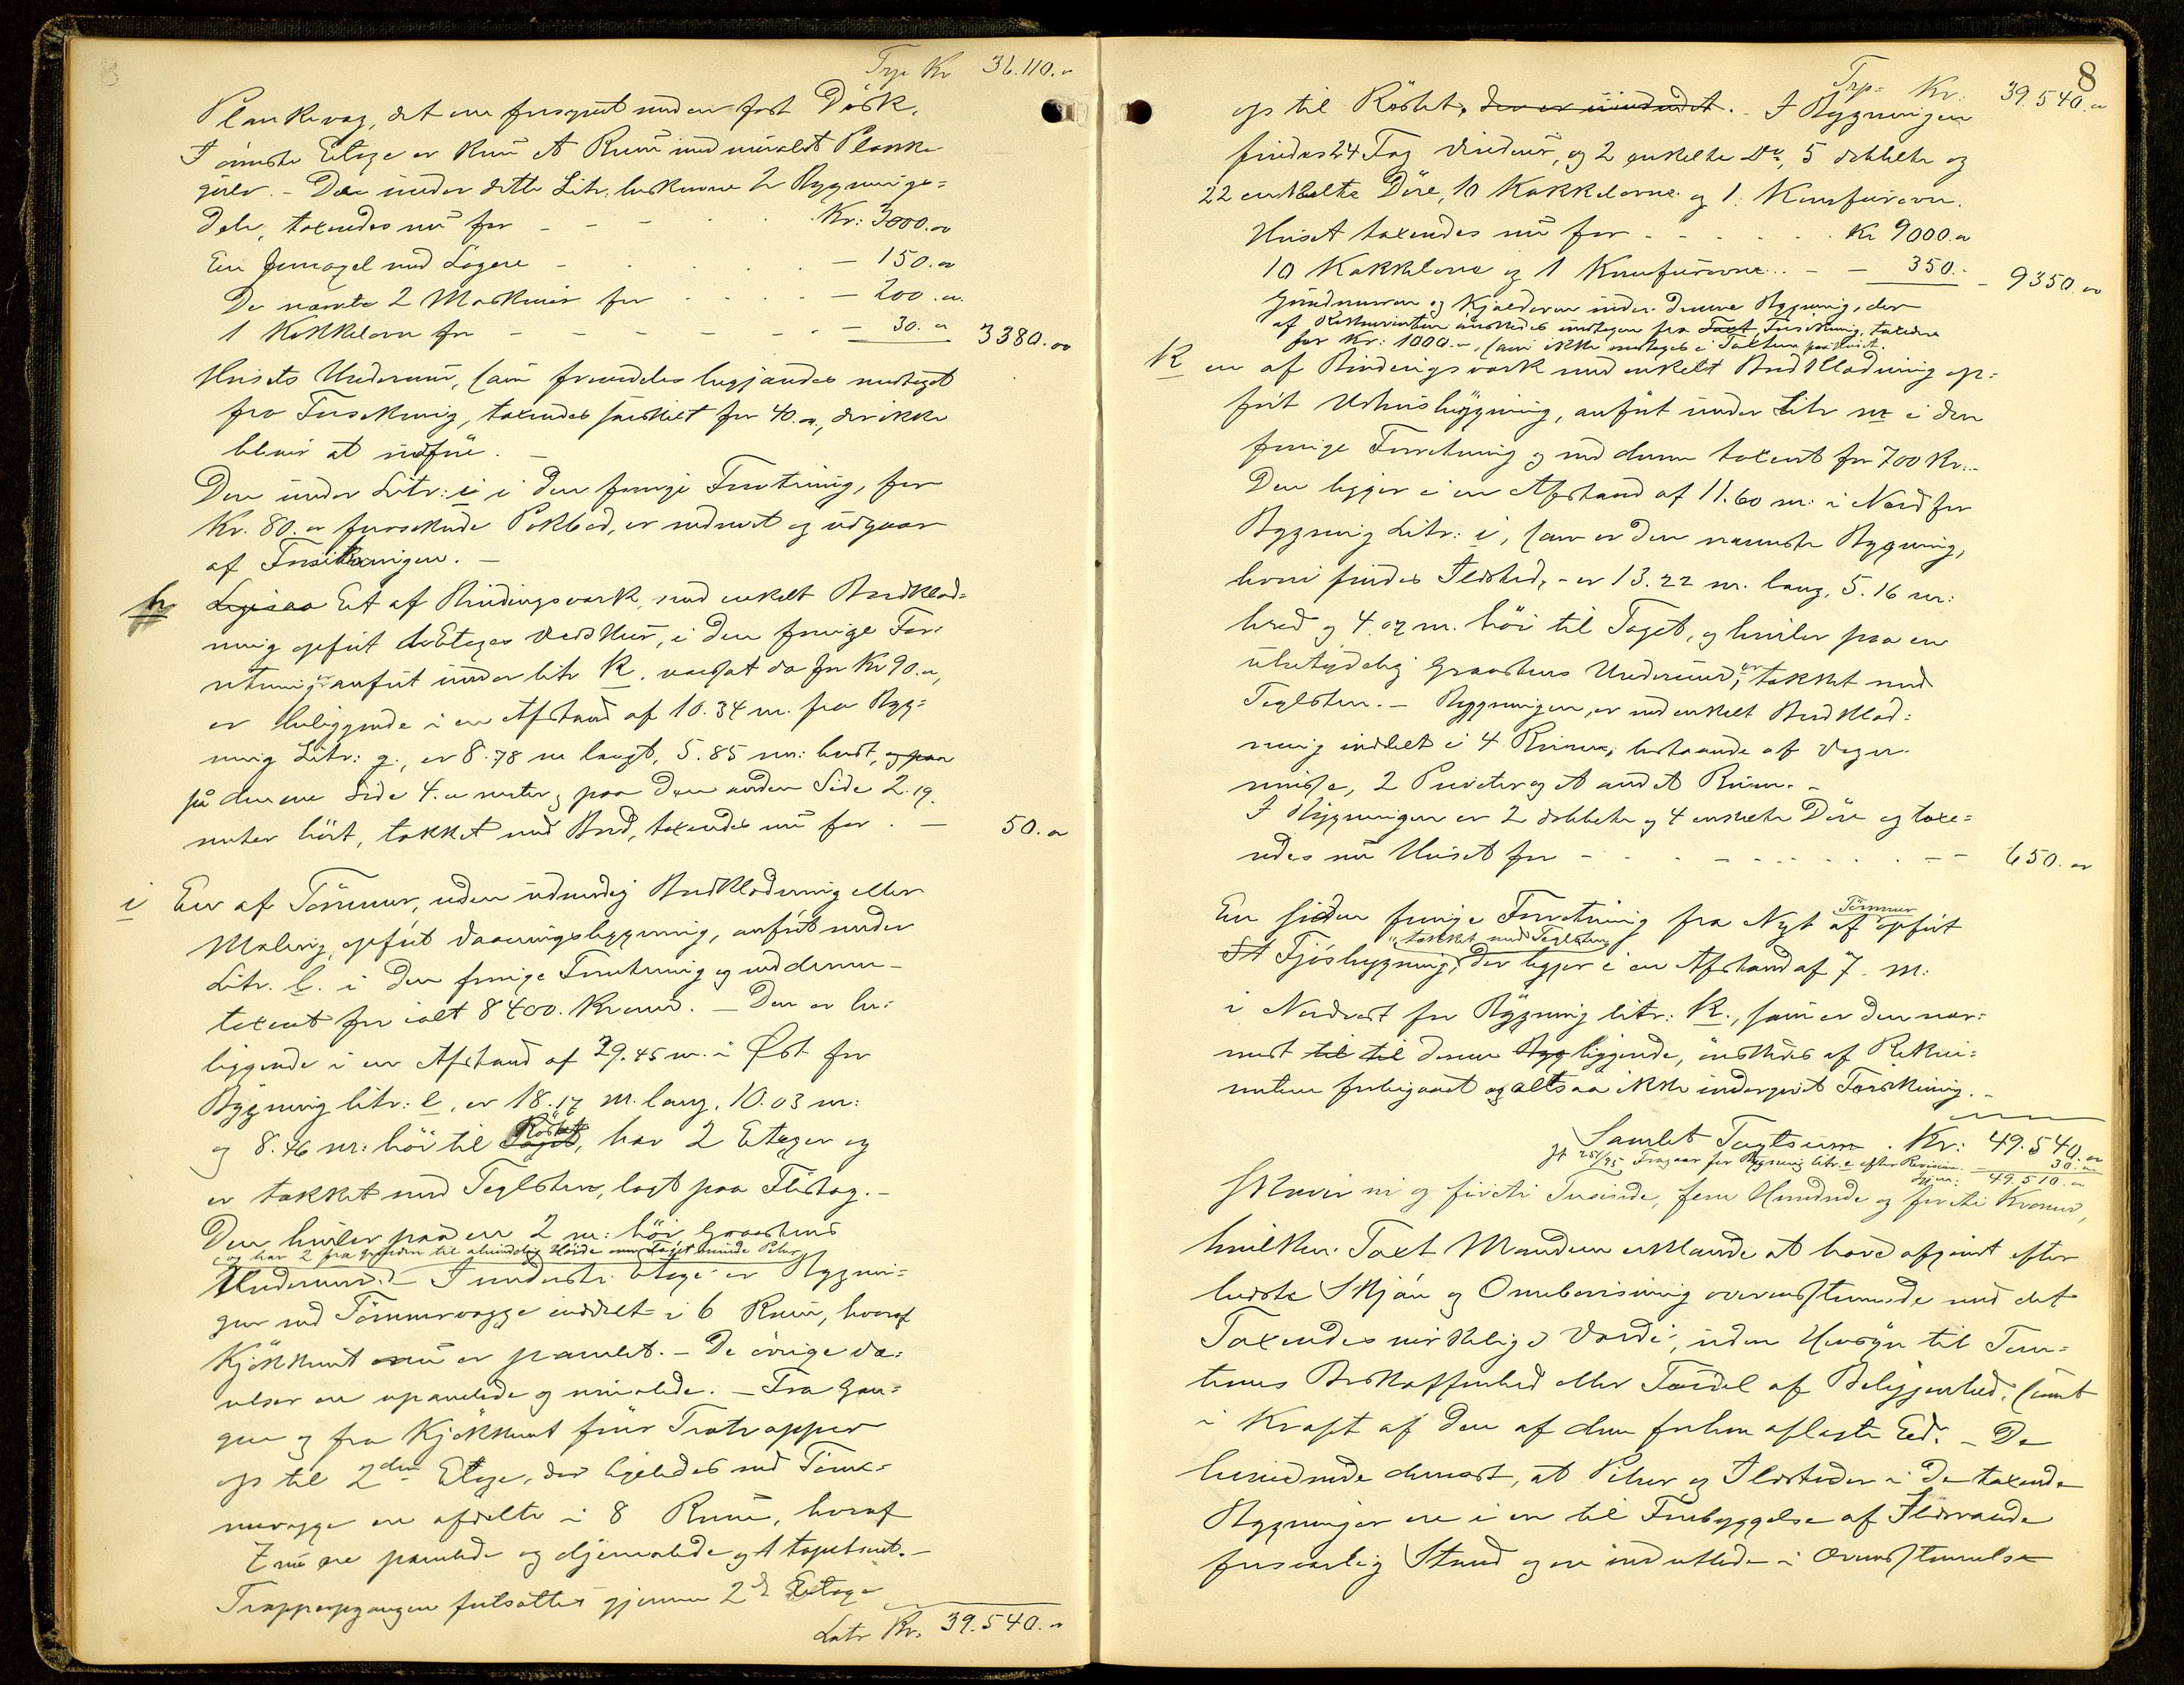 Trp. Kr 36.110.„
Plankevæg, det ene forsynet med en fast Disk.
I øverste Etage er kun et Rum med umalet Planke
gulv. – De under dette Litr. beskrevne 2 Bygnings=
dele, taxeredes nu for – – – Kr: 3000.00
En Jernaxel med Lagere – – 150.00
De nævnte 2 Maskiner for – 200.„
1 Kakkelovn for – – – – – 30.„ 3380.00
Husets Undermur, som fremdeles begjæredes undtaget
fra Forsikring, taxeredes særskilt for 40.„, der ikke
bliver at udføre. –
Den under Litr: i i den forrige Forretning, for
Kr. 80.„ forsikrede , er nedrevet og udgaar
af Forsikringen. –
h Et af Bindingsværk, med enkelt Bordklæd=
ning opført to Etages Vedskur, i den forrige For=
retning er anført under litr k. værdsat da for Kr 90.„,
er beliggende i en Afstand af 10.34 m. fra Byg=
ning Litr: g., er 8.78 m langt, 5.85 m: bredt, og paa
på den ene Side 4.„ meter og paa den anden Side 2.19.
meter høit, tækket med Bord, taxeredes nu for . – 50.„
i En af Tømmer, uden udvendig Bordklædning eller
Maling, opført Vaaningsbygning, anført under
Litr. l. i den forrige Forretning og ved denne –
taxeret for ialt 8400. Kroner. – Den er be=
liggende i en Afstand af 29.45 m. i Øst for
Bygning litr: e, er 18.17 m. lang, 10.03 m:
og 8.46 m: høi til Taget Røstet, har 2 Etager og
er tækket med Teglsten, lagt paa Flistag. –
Den hviler paa en 2 m: høi Graastens
og har 2 fra Grunden til almindelig Høide over Taget murede Piber
Undermur. – I nederste Etage er Bygnin=
gen ved Tømmervægge inddelt i 6 Rum, hvoraf
Kjøkkenet nu er panelet. – De øvrige Væ=
relser ere upanelede og umalede. – Fra Gan=
gen og fra Kjøkkenet fører Trætrapper
op til 2den Etage, der ligeledes ved Tøm=
mervægge ere afdelte i 8 Rum, hvoraf
7 nu ere panelede og oljemalede og 1 tapetseret. –
Trappeopgangen fortsættes gjennem 2d Etage
Latr Kr. 39.540.„
8
Trp= Kr: 39.540.„
op til Røstet, der er uindredet. – I Bygningen
findes 24 Fag Vinduer, og 2 enkelte Do, 5 dobbelte og
22 enkelte Døre, 10 Kakkelovne og 1. Komfurovn.
Huset taxeredes nu for – – – Kr 9000.„
10 Kakkelovne og 1 Komfurovne .. – – 350.– – 9350.00
Grundmuren og Kjælderen under denne Bygning, der
af Rekvirenten ønskedes undtagen fra Taxt Forsikring, taxeres
for Kr: 1000.„, som ikke medtages i Taxten paa Huset.
k en af Bindingsværk med enkelt Bordklædning op=
ført Udhusbygning, anført under Litr m i den
forrige Forretning og ved denne taxeret for 700 Kr.–
Den ligger i en Afstand af 11.60 m: i Nord for
Bygning Litr: i, som er den nærmeste Bygning,
hvori findes Ildsted, – er 13.22 m. lang, 5.16 m:
bred og 4.07 m. høi til Taget, og hviler paa en
ubetydelig Graastens Undermur, er tækket med
Teglsten. – Bygningen, er ved enkelt Bordklæd=
ning inddelt i 4 Rum, bestaaende af Vogn
remisse, 2 Priveter og et andet Rum. –
I Bygningen er 2 dobbelte og 4 enkelte Døre og taxe=
redes nu Huset for – – – – – 650.„
En siden forrige Forretning fra Nyt af Tømmer opført
St Fjøsbygning, tækket med Teglsten, der ligger i en Afstand af 7. m:
i Nordvest for Bygning litr: k., som er den nær=
mest til til denne Byg liggende, ønskedes af Rekvi=
renten forbigaaet og altsaa ikke undergivet Forsikring. –
Samlet Taxtsum . Kr: 49.540.„
Fragaar for Bygning litr. e efter Revision. – 30.„
Igjen: 49.510.„
Skriver ni og fireti Tusinde, fem Hundrede og fireti Kroner,
hvilken Taxt Mændene erklærede at have afgivet efter
bedste Skjøn og Overbevisning overensstemmende med det
Taxeredes virkelige Værdi, uden Hensyn til Tom=
tenes Beskaffenhed eller Fordel af Beliggenhed, samt
i Kraft af den af dem forhen aflagte Ed. – De
bevidnede dernæst, at Piber og Ildsteder i de taxerede
Bygninger ere i en til Forebyggelse af Ildsvaade
forsvarlig Stand og ere indrettede i Overensstemmelse